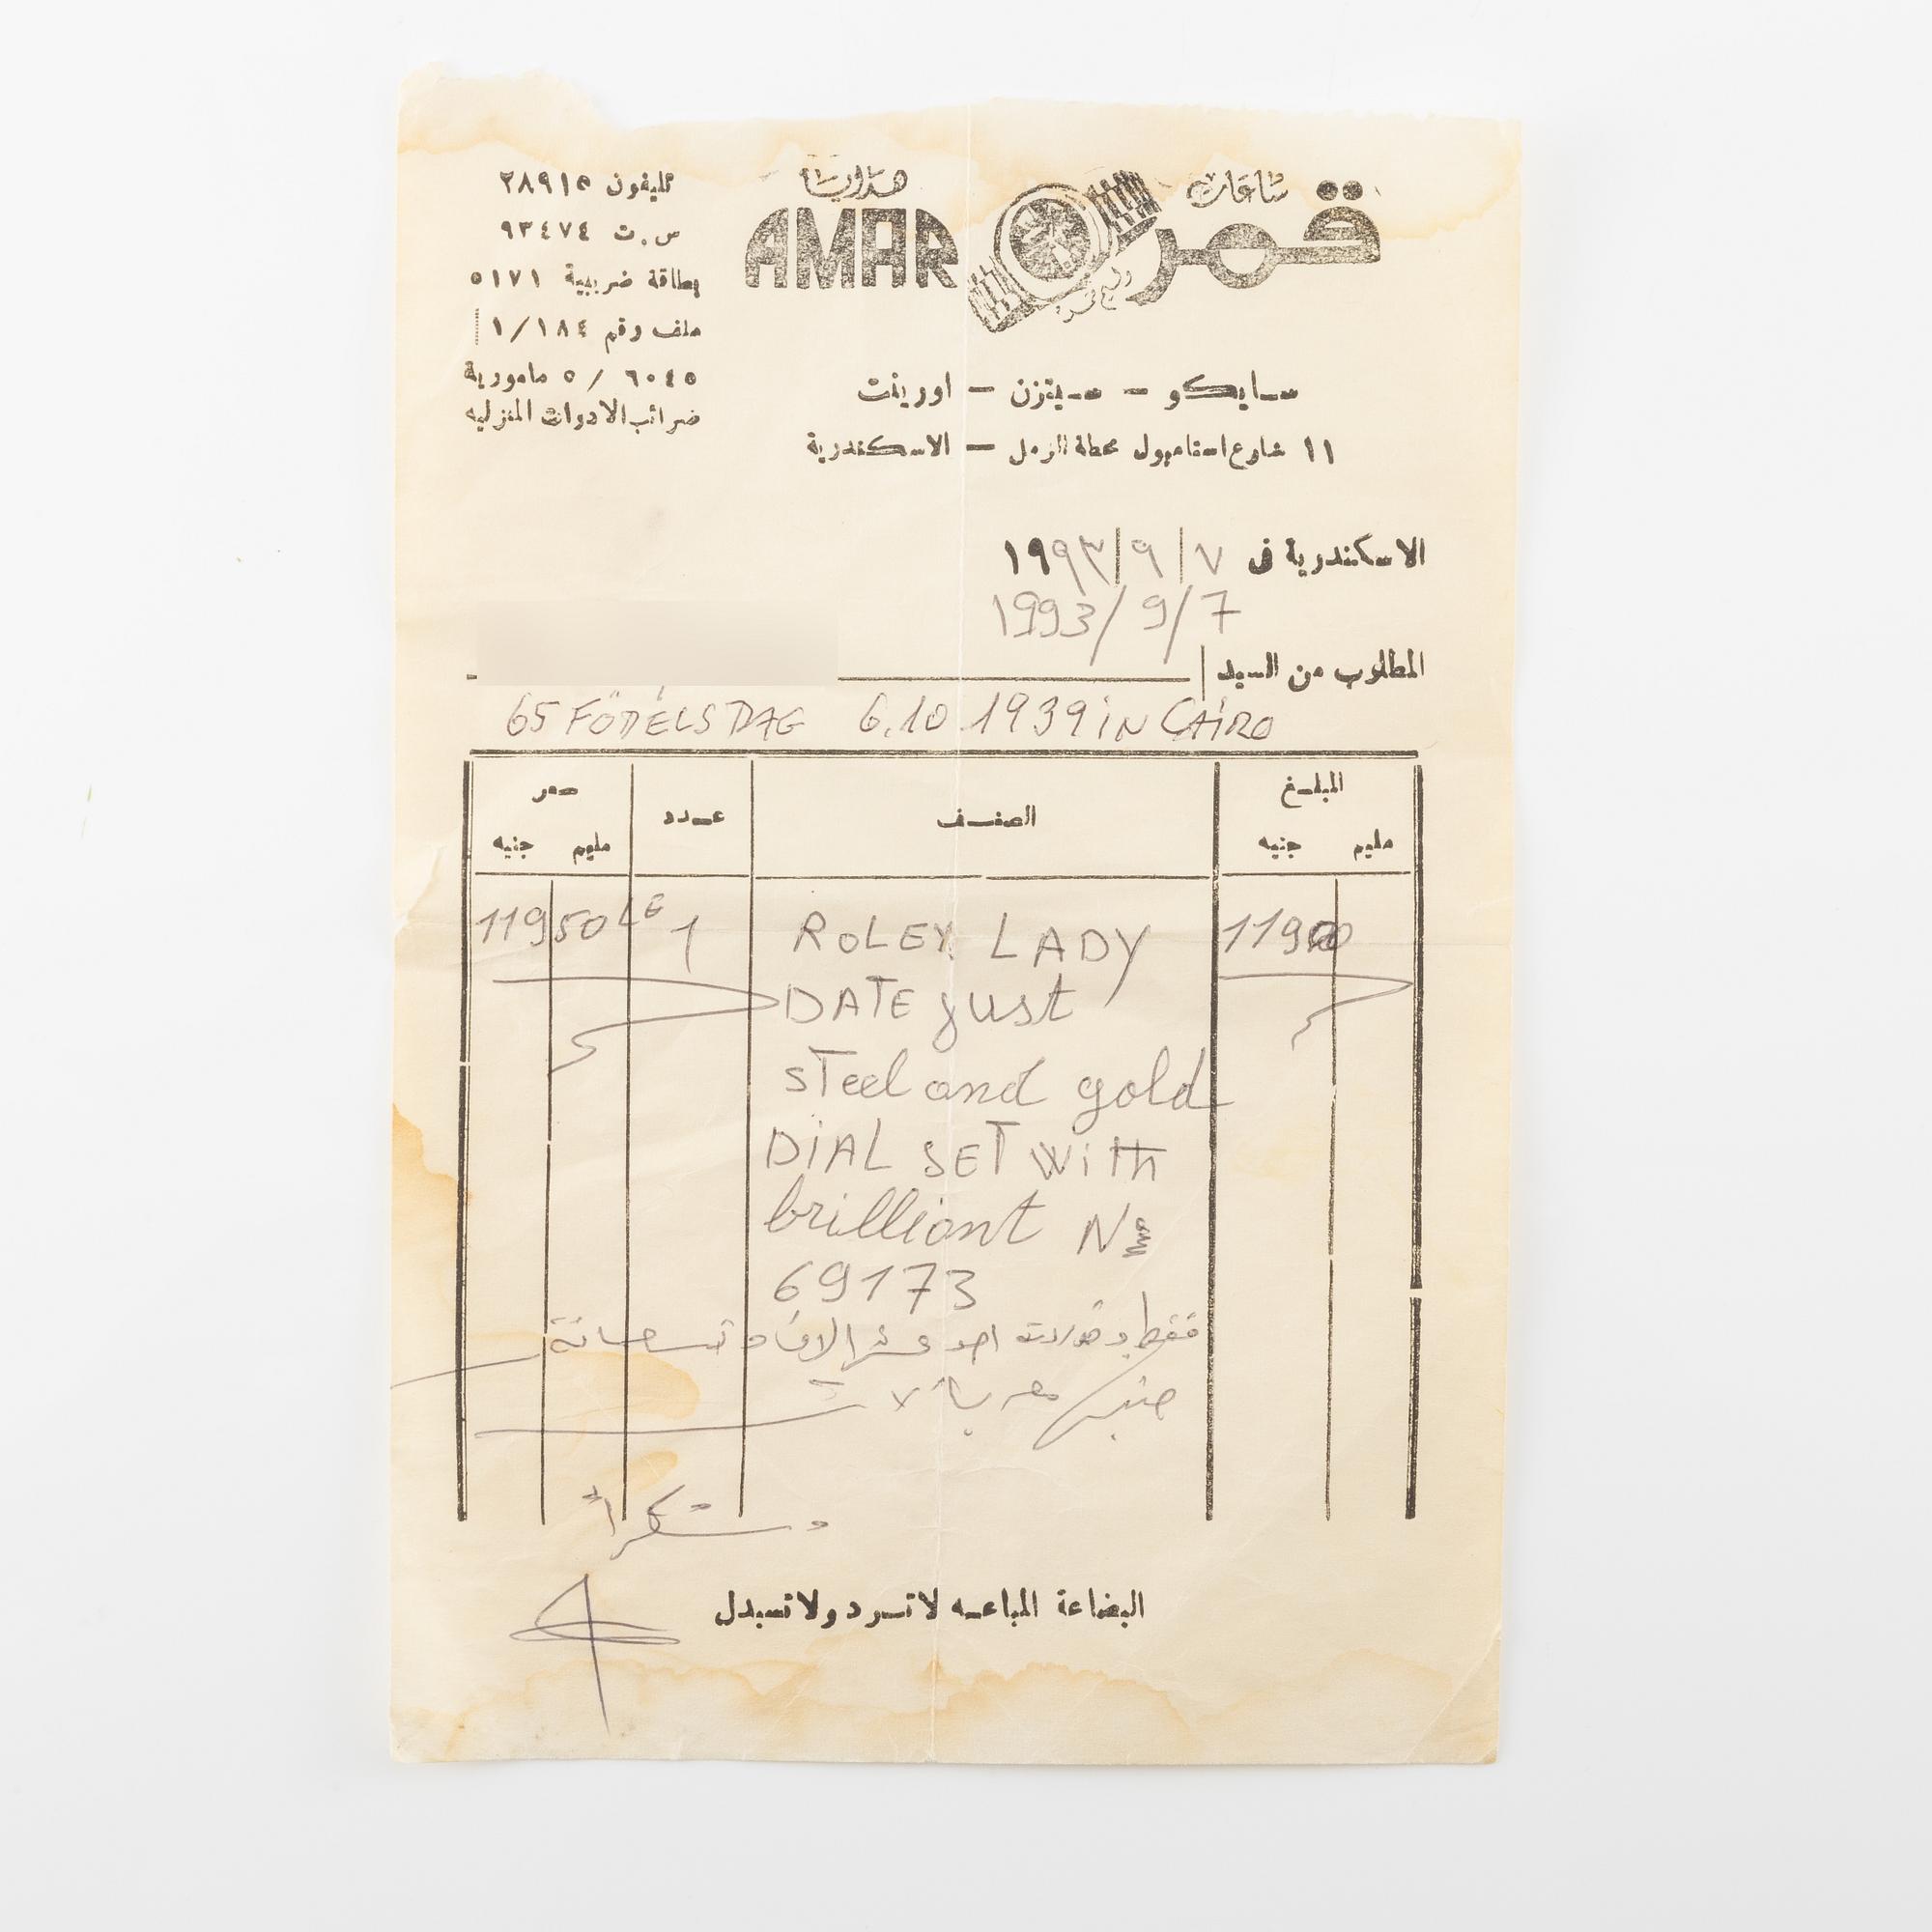 هدايا
ساعات
AMAR
قمر
تليفون ٢٨٩١٥
س.ت ٩٣٤٧٤
بطاقة ضريبية ٥١٧١
ملف رقم ١/١٨٤
٦٠٤٥ / ٥ مامورية
ضرائب الادوات المنزليه
سايكو - سيتزن - اورينت
١١ شارع استامبول محطة الرمل - الاسكندرية
الاسكندرية فى ٧/٩/١٩٩٣
1993/9/7
المطلوب من السيد
65 FÖDELSDAG 6.10.1939 iN CAiRO
المبلغ
مليم جنيه
الصنف
عدد
سعر
مليم جنيه
11950 LE 1 ROLEX LADY 11900
DATE just
steel and gold
DiAL SET WiTH
brilliant No
69173
فقط وقدره احد عشر الاف و تسعمائة
جنيه
وشكراً
البضاعة المباعه لا ترد ولا تبدل